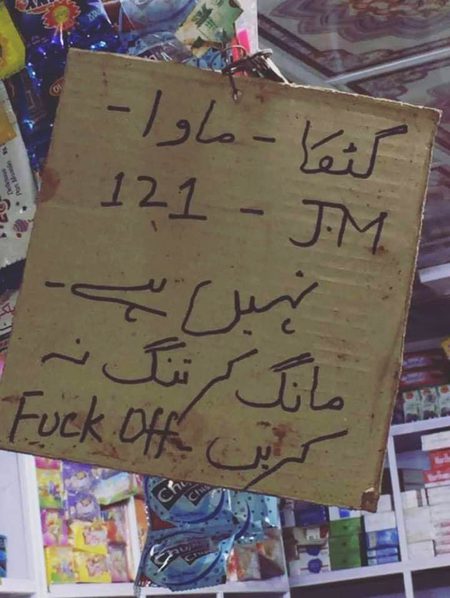 گٹکا - ماوا -
J.M - 121
نہیں ہے -
مانگ کر تنگ نہ
کریں - Fuck Off